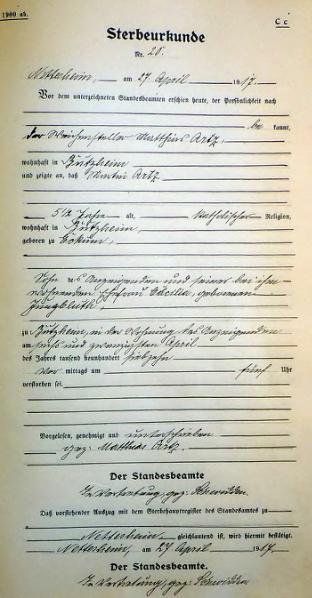 1900 ab.
C c
Sterbeurkunde
Nr. 28.
Netterheim, am 27. April 1917.
Vor dem unterzeichneten Standesbeamten erschien heute, der Persönlichkeit nach
be kannt,
der Weichensteller Matthias Artz,
wohnhaft in Zützheim
und zeigte an, daß Artz
5 1/2 Jahre alt, katholischer Religion,
wohnhaft in Zützheim,
geboren zu
Sohn des Anzeigenden und seiner bei ihm
wohnenden Ehefrau Cäcilia, geborenen
Jungbluth,
zu Zützheim, in der Wohnung des Anzeigenden
am sechs und zwanzigsten April
des Jahres tausend neunhundert siebzehn
Vor mittags um fünf Uhr
verstorben sei.
Vorgelesen, genehmigt und unterschrieben
gez. Matthias Artz.
Der Standesbeamte
In Vertretung, gez.
Daß vorstehender Auszug mit dem Sterbehauptregister des Standesamtes zu
Netterheim gleichlautend ist, wird hiermit bestätigt.
Netterheim, am 27. April 1917.
Der Standesbeamte.
In Vertretung, gez.